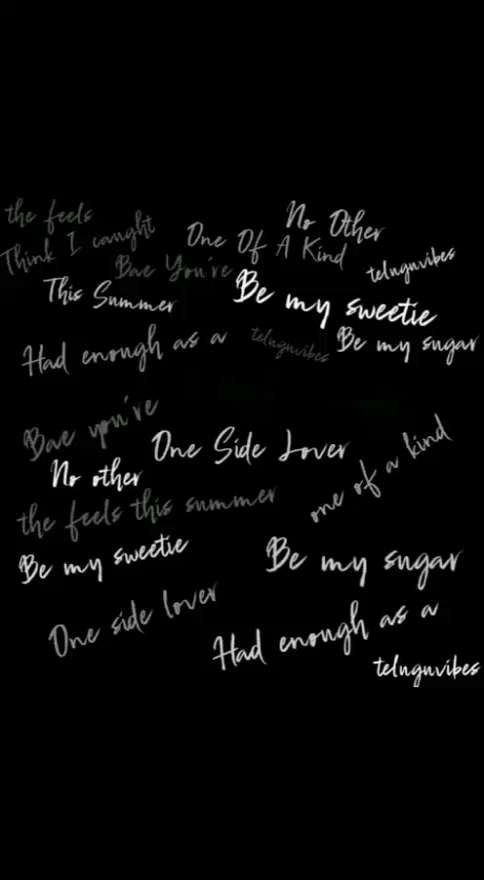 the feels
No Other
Think I caught
One Of A Kind
Bae You're
teluguvibes
This Summer
Be my sweetie
Had enough as a
teluguvibes
Be my sugar
Bae you're
One Side Lover
one of a kind
No other
the feels this summer
Be my sweetie
Be my sugar
One side lover
Had enough as a
teluguvibes